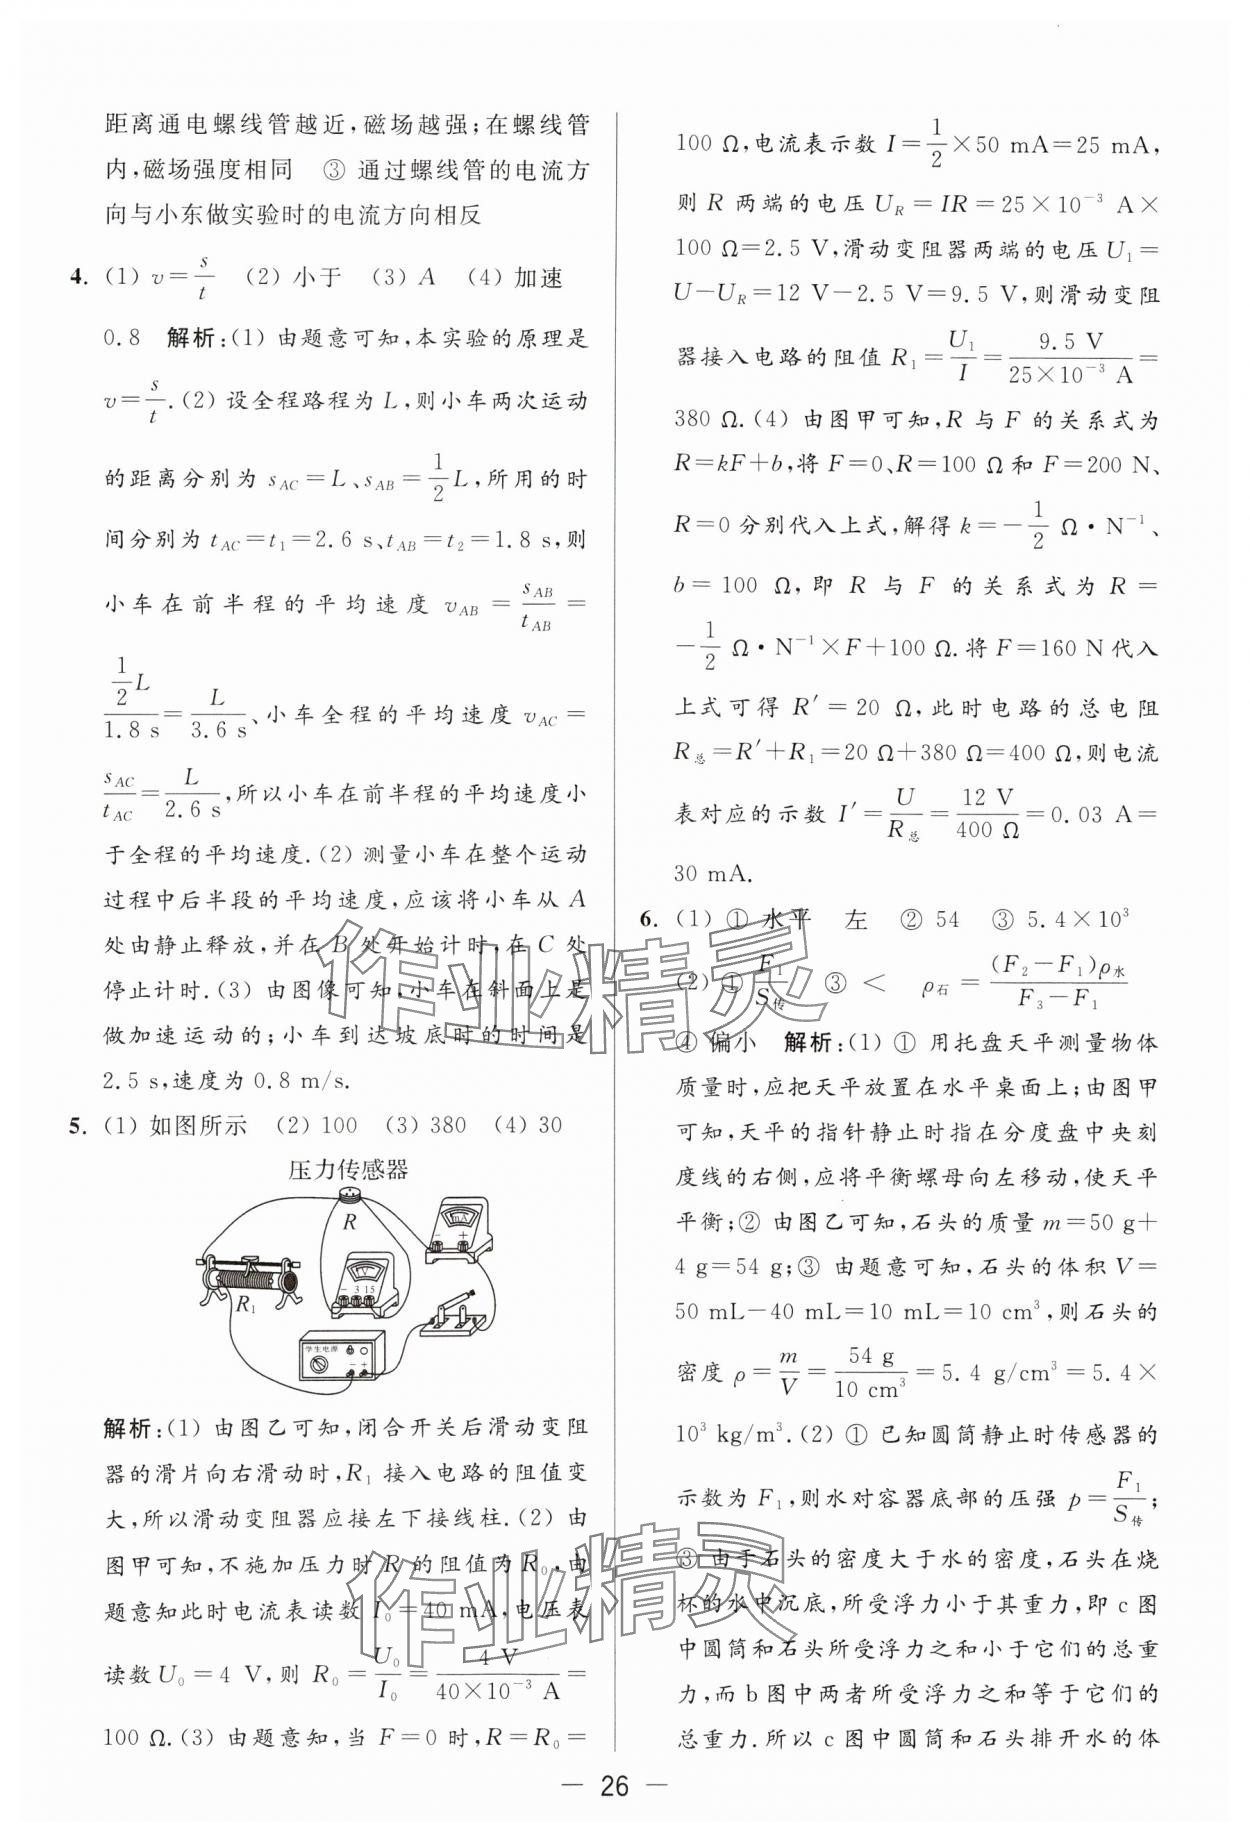 距离通电螺线管越近,磁场越强;在螺线管
内,磁场强度相同 ③ 通过螺线管的电流方
向与小东做实验时的电流方向相反
4. (1) v=s/t (2) 小于 (3) A (4) 加速
0.8 解析:(1) 由题意可知,本实验的原理是
v=s/t.(2) 设全程路程为 L,则小车两次运动
的距离分别为 s_AC=L、s_AB=1/2 L,所用的时
间分别为 t_AC=t₁=2.6 s、t_AB=t₂=1.8 s,则
小车在前半程的平均速度 v_AB=s_AB/t_AB=
(1/2 L)/(1.8 s)=L/(3.6 s)、小车全程的平均速度 v_AC=
s_AC/t_AC=L/(2.6 s),所以小车在前半程的平均速度小
于全程的平均速度.(2) 测量小车在整个运动
过程中后半段的平均速度,应该将小车从 A
处由静止释放,并在 B 处开始计时,在 C 处
停止计时.(3) 由图像可知,小车在斜面上是
做加速运动的;小车到达坡底时的时间是
2.5 s,速度为 0.8 m/s.
5. (1) 如图所示 (2) 100 (3) 380 (4) 30
压力传感器
R
mA
- +
V
- 3 15
R₁
学生电源
- +
解析:(1) 由图乙可知,闭合开关后滑动变阻
器的滑片向右滑动时,R₁ 接入电路的阻值变
大,所以滑动变阻器应接左下接线柱.(2) 由
图甲可知,不施加压力时 R 的阻值为 R₀,由
题意知此时电流表读数 I₀=40 mA,电压表
读数 U₀=4 V,则 R₀=U₀/I₀=4 V/(40×10⁻³ A)=
100 Ω.(3) 由题意知,当 F=0 时,R=R₀=
100 Ω,电流表示数 I=1/2×50 mA=25 mA,
则 R 两端的电压 U_R=IR=25×10⁻³ A×
100 Ω=2.5 V,滑动变阻器两端的电压 U₁=
U-U_R=12 V-2.5 V=9.5 V,则滑动变阻
器接入电路的阻值 R₁=U₁/I=9.5 V/(25×10⁻³ A)=
380 Ω.(4) 由图甲可知,R 与 F 的关系式为
R=kF+b,将 F=0、R=100 Ω 和 F=200 N、
R=0 分别代入上式,解得 k=-1/2 Ω·N⁻¹、
b=100 Ω,即 R 与 F 的关系式为 R=
-1/2 Ω·N⁻¹×F+100 Ω.将 F=160 N 代入
上式可得 R′=20 Ω,此时电路的总电阻
R总=R′+R₁=20 Ω+380 Ω=400 Ω,则电流
表对应的示数 I′=U/R总=12 V/400 Ω=0.03 A=
30 mA.
6. (1) ① 水平 左 ② 54 ③ 5.4×10³
(2) ① F₁/S传 ③ < ρ石=(F₂-F₁)ρ水/(F₃-F₁)
④ 偏小 解析:(1) ① 用托盘天平测量物体
质量时,应把天平放置在水平桌面上;由图甲
可知,天平的指针静止时指在分度盘中央刻
度线的右侧,应将平衡螺母向左移动,使天平
平衡;② 由图乙可知,石头的质量 m=50 g+
4 g=54 g;③ 由题意可知,石头的体积 V=
50 mL-40 mL=10 mL=10 cm³,则石头的
密度 ρ=m/V=54 g/10 cm³=5.4 g/cm³=5.4×
10³ kg/m³.(2) ① 已知圆筒静止时传感器的
示数为 F₁,则水对容器底部的压强 p=F₁/S传;
③ 由于石头的密度大于水的密度,石头在烧
杯的水中沉底,所受浮力小于其重力,即 c 图
中圆筒和石头所受浮力之和小于它们的总重
力,而 b 图中两者所受浮力之和等于它们的
总重力.所以 c 图中圆筒和石头排开水的体
— 26 —
作业精灵
作业精灵